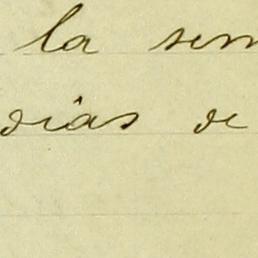 la sem
dias de